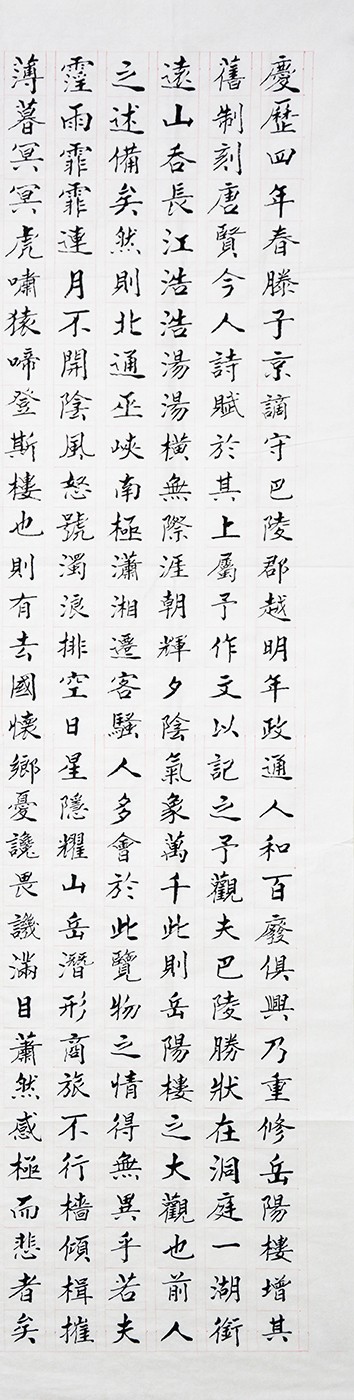 慶歷四年春滕子京謫守巴陵郡越明年政通人和百廢俱興乃重修岳陽樓增其
舊制刻唐賢今人詩賦於其上屬予作文以記之予觀夫巴陵勝狀在洞庭一湖銜
遠山吞長江浩浩湯湯橫無際涯朝輝夕陰氣象萬千此則岳陽樓之大觀也前人
之述備矣然則北通巫峽南極瀟湘遷客騷人多會於此覽物之情得無異乎若夫
霪雨霏霏連月不開陰風怒號濁浪排空日星隱耀山岳潛形商旅不行檣傾楫摧
薄暮冥冥虎嘯猿啼登斯樓也則有去國懷鄉憂讒畏譏滿目蕭然感極而悲者矣